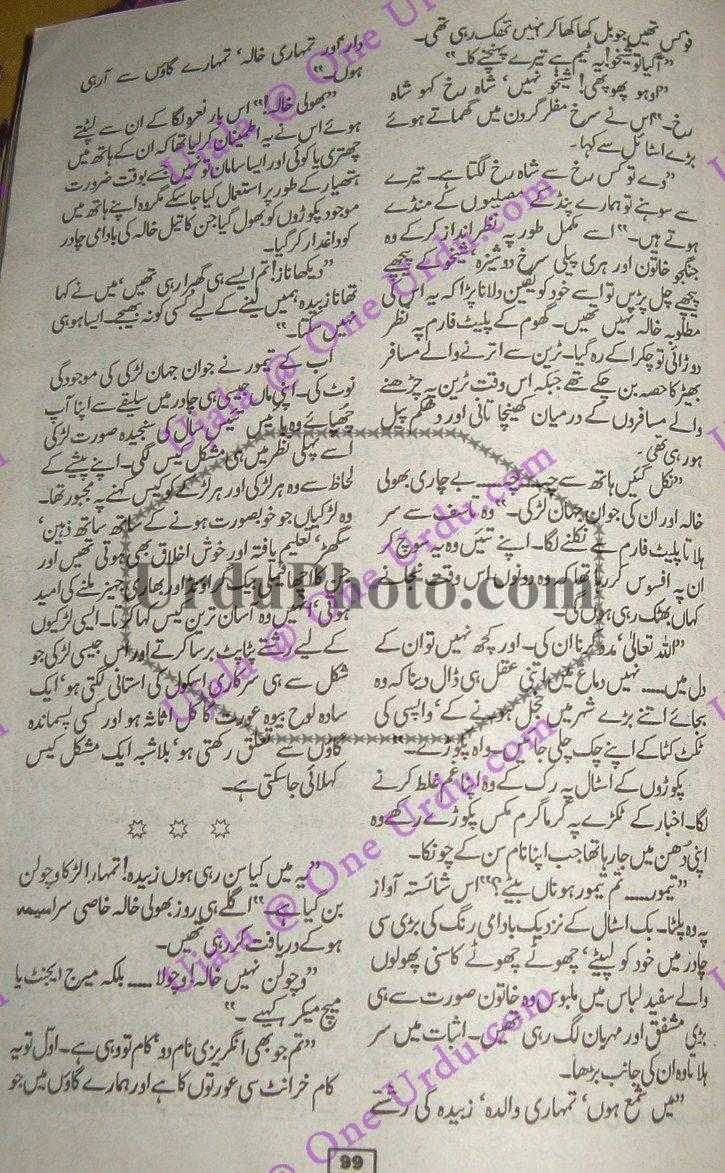 فوکس تھیں جو بل کھا کھا کر نہیں تھک رہی تھی۔
"آ گیا تو شیخو! یہ ٹیم ہے تیرے پہنچنے کا۔"
"اوہو پھوپھی! شیخو نہیں، شاہ رخ کہو شاہ
رخ۔" اس نے سرخ مفلر گردن میں گھماتے ہوئے
بڑے اسٹائل سے کہا۔
"وے تو کس رخ سے شاہ رخ لگتا ہے۔ تیرے
سے سوہنے تو ہمارے پنڈ کے مصلیوں کے منڈے
ہوتے ہیں۔" اسے مکمل طور پہ نظر انداز کر کے وہ
جنگجو خاتون اور ہری پیلی سرخ دوشیزہ، شیخو کے پیچھے
پیچھے چل پڑیں تو اسے خود کو یقین دلانا پڑا کہ یہ اس کی
مطلوبہ خالہ نہیں تھیں۔ گھوم کے پلیٹ فارم پہ نظر
دوڑائی تو چکرا کے رہ گیا۔ ٹرین سے اترنے والے مسافر
بھیڑ کا حصہ بن چکے تھے جبکہ اس وقت ٹرین پہ چڑھنے
والے مسافروں کے درمیان کھینچا تانی اور دھکم پیل
ہو رہی تھی۔
"نکل گئیں ہاتھ سے ..... بے چاری بھولی
خالہ اور ان کی جوان جہان لڑکی۔" وہ تاسف سے سر
ہلاتا پلیٹ فارم سے نکلنے لگا۔ اپنے تئیں وہ یہ سوچ کر
ان پہ افسوس کر رہا تھا کہ وہ دونوں اس وقت نجانے
کہاں بھٹک رہی ہوں گی۔
"اللہ تعالیٰ، مدد کرنا ان کی۔ اور کچھ نہیں تو ان کے
دل میں..... نہیں دماغ میں اتنی عقل ہی ڈال دینا کہ وہ
بجائے اتنے بڑے شہر میں خجل ہونے کے، واپسی کی
ٹکٹ کٹا کے اپنے چک چلی جائیں۔ واہ پکوڑے۔"
پکوڑوں کے اسٹال پہ رک کے وہ اپنا غم غلط کرنے
لگا۔ اخبار کے ٹکڑے پہ گرما گرم مکس پکوڑے رکھے وہ
اپنی دھن میں جا رہا تھا جب اپنا نام سن کے چونکا۔
"تیمور..... تم تیمور ہو ناں بیٹے؟" اس شائستہ آواز
پہ وہ پلٹا۔ بک اسٹال کے نزدیک بادامی رنگ کی بڑی سی
چادر میں خود کو لپیٹے، چھوٹے چھوٹے کاسنی پھولوں
والے سفید لباس میں ملبوس وہ خاتون صورت سے ہی
بڑی مشفق اور مہربان لگ رہی تھیں۔ اثبات میں سر
ہلاتا وہ ان کی جانب بڑھا۔
"میں شمع ہوں، تمہاری والدہ، زبیدہ کی رشتے
دار اور تمہاری خالہ، تمہارے گاؤں سے آ رہی
ہوں۔"
"بھولی خالہ!" اس بار نعرہ لگا کے ان سے لپٹتے
ہوئے اس نے یہ اطمینان کر لیا تھا کہ ان کے ہاتھ میں
چھتری یا کوئی اور ایسا سامان تو نہیں جسے بوقت ضرورت
ہتھیار کے طور پر استعمال کیا جا سکے مگر وہ اپنے ہاتھ میں
موجود پکوڑوں کو بھول گیا جن کا تیل خالہ کی بادامی چادر
کو داغدار کر گیا۔
"دیکھا ناز! تم ایسے ہی گھبرا رہی تھیں، میں نے کہا
تھا نا زبیدہ ہمیں لینے کے لیے کسی کو نہ بھیجے ایسا ہو ہی
نہیں سکتا۔"
اب کے تیمور نے جوان جہان لڑکی کی موجودگی
نوٹ کی۔ اپنی ماں جیسی ہی چادر میں سلیقے سے اپنا آپ
چھپائے وہ بائیس تئیس سال کی سنجیدہ صورت لڑکی
اسے پہلی نظر میں ہی مشکل کیس لگی۔ اپنے پیشے کے
لحاظ سے وہ ہر لڑکی اور ہر لڑکے کو کیس کہنے پہ مجبور تھا۔
وہ لڑکیاں جو خوبصورت ہونے کے ساتھ ساتھ ذہین،
سگھڑ، تعلیم یافتہ اور خوش اخلاق بھی ہوتی تھیں اور
جن کا اچھا فیملی بیک گراؤنڈ اور بھاری جہیز ملنے کی امید
ہوتی، انہیں وہ آسان ترین کیس کہا کرتا۔ ایسی لڑکیوں
کے لیے رشتے پٹاپٹ برسا کرتے اور اس جیسی لڑکی جو
شکل سے ہی سرکاری اسکول کی استانی لگتی ہو، ایک
سادہ لوح بیوہ عورت کا کل اثاثہ ہو اور کسی پسماندہ
گاؤں سے تعلق رکھتی ہو، بلاشبہ ایک مشکل کیس
کہلائی جا سکتی ہے۔
"یہ میں کیا سن رہی ہوں زبیدہ! تمہارا لڑکا وچولن
بن گیا ہے۔" اگلے ہی روز بھولی خالہ خاصی سراسیمہ
ہو کے دریافت کر رہی تھیں۔
"وچولن نہیں خالہ! وچولا..... بلکہ میرج ایجنٹ یا
میچ میکر کہیے۔"
"تم جو بھی انگریزی نام دو، کام تو وہی ہے۔ اول تو یہ
کام خرانٹ سی عورتوں کا ہے اور ہمارے گاؤں میں جو
99
UrduPhoto.com
Ujala @ One Urdu.com